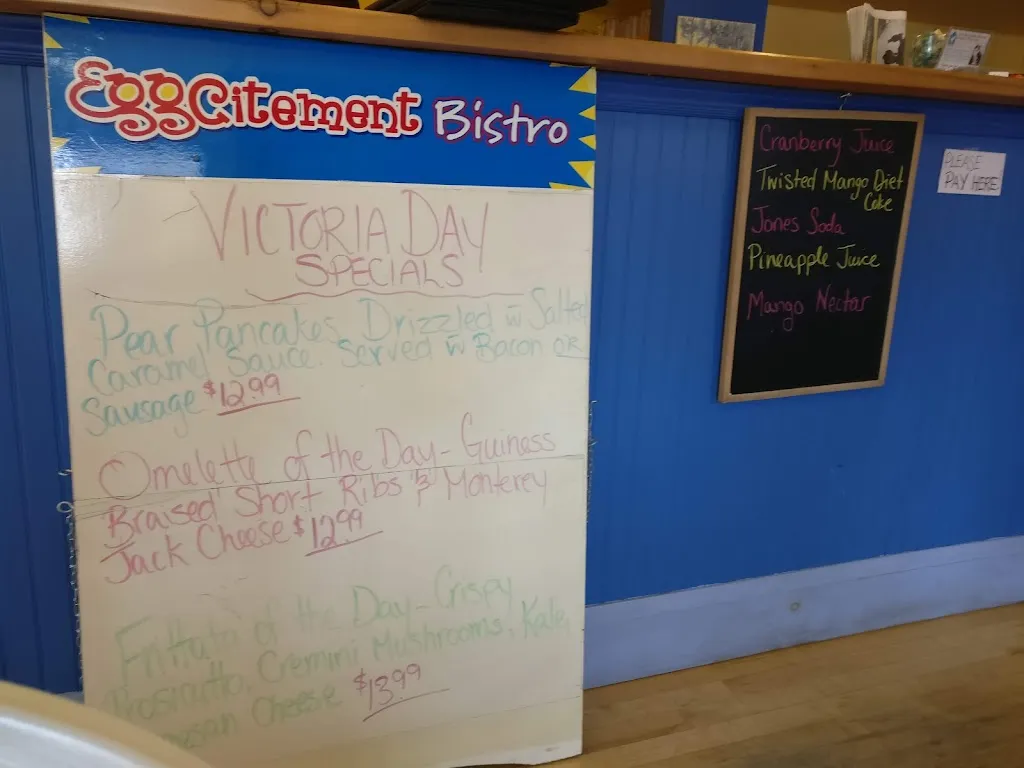 EggCitement Bistro
VICTORIA DAY
SPECIALS
Pear Pancakes Drizzled w Salted
Caramel Sauce. Served w Bacon OR
Sausage $12.99
Omelette of the Day - Guiness
Braised Short Ribs & Monterey
Jack Cheese $12.99
Frittata of the Day - Crispy
Prosciutto, Cremini Mushrooms, Kale,
Cheese $13.99
Cranberry Juice
Twisted Mango Diet
Coke
Jones Soda
Pineapple Juice
Mango Nectar
PLEASE
PAY HERE